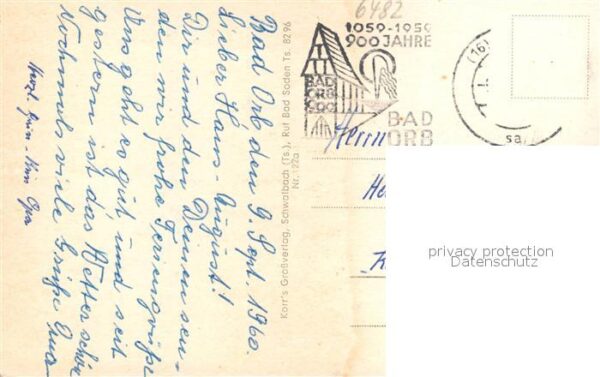 Bad Orb den 9. Sept. 1960.
Lieber Hans-August!
Dir und den Deinen sen-
den wir frohe Feriengrüße
Uns geht es gut und seit
gestern ist das Wetter schön
Nochmals viele Grüße Oma
Herzl.
Opa
Korr's Großverlag, Schwalbach (Ts.), Ruf Bad Soden Ts. 8296
Nr. 122a
6482
1059-1959
900 JAHRE
BAD
ORB
900
BAD
ORB
(16)
Herrn
privacy protection
Datenschutz